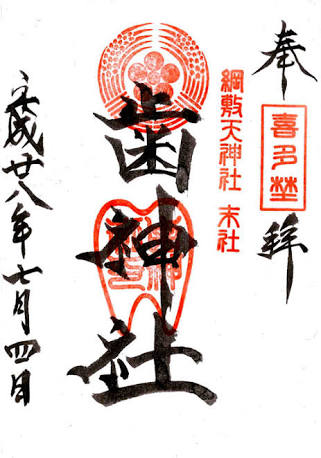 奉拝
喜多埜
綱敷天神社 末社
歯神社
平成廿八年七月四日